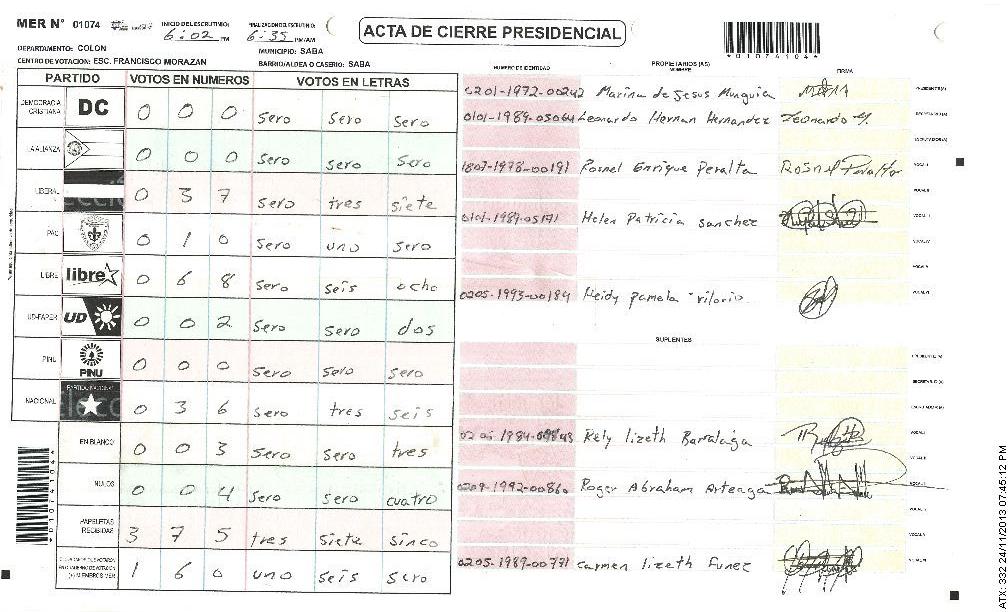 MER N° 01074 INICIO DEL ESCRUTINIO: 6:02 PM FINALIZACION DEL ESCRUTINIO: 6:35 PM/AM
ACTA DE CIERRE PRESIDENCIAL
*01074104*
DEPARTAMENTO: COLON MUNICIPIO: SABA
CENTRO DE VOTACION: ESC. FRANCISCO MORAZAN BARRIO/ALDEA O CASERIO: SABA
PARTIDO VOTOS EN NUMEROS VOTOS EN LETRAS
DEMOCRACIA CRISTIANA DC 0 0 0 sero sero sero
LA ALIANZA 0 0 0 sero sero sero
LIBERAL 0 3 7 sero tres siete
PAC 0 1 0 sero uno sero
LIBRE libre 0 6 8 sero seis ocho
UD-FAPER UD 0 0 2 sero sero dos
PINU PINU 0 0 0 sero sero sero
NACIONAL PARTIDO NACIONAL 0 3 6 sero tres seis
EN BLANCO 0 0 3 sero sero tres
NULOS 0 0 4 sero sero cuatro
PAPELETAS RECIBIDAS 3 7 5 tres siete sinco
(+) MIEMBROS MER 1 6 0 uno seis sero
*01074104*
NUMERO DE IDENTIDAD PROPIETARIOS (AS) NOMBRE FIRMA
0201-1972-00242 Marina de Jesus Munguia PRESIDENTE(A)
0101-1989-03064 Leonardo Hernan Hernandez Leonardo H. SECRETARIO(A)
ESCRUTADOR(A)
1807-1978-00191 Rosnel Enrique Peralta Rosnel Peralta VOCAL I
VOCAL II
0101-1989-05171 Helen Patricia Sanchez VOCAL III
VOCAL IV
VOCAL V
0205-1993-00184 Heidy pamela vilorio VOCAL VI
SUPLENTES
PRESIDENTE(A)
SECRETARIO(A)
ESCRUTADOR(A)
Kely lizeth Barralaga VOCAL I
VOCAL II
0209-1992-00860 Roger Abraham Arteaga VOCAL III
VOCAL V
0205-1989-00771 Carmen lizeth Funez VOCAL VI
ATX: 332 24/11/2013 07:45:12 PM